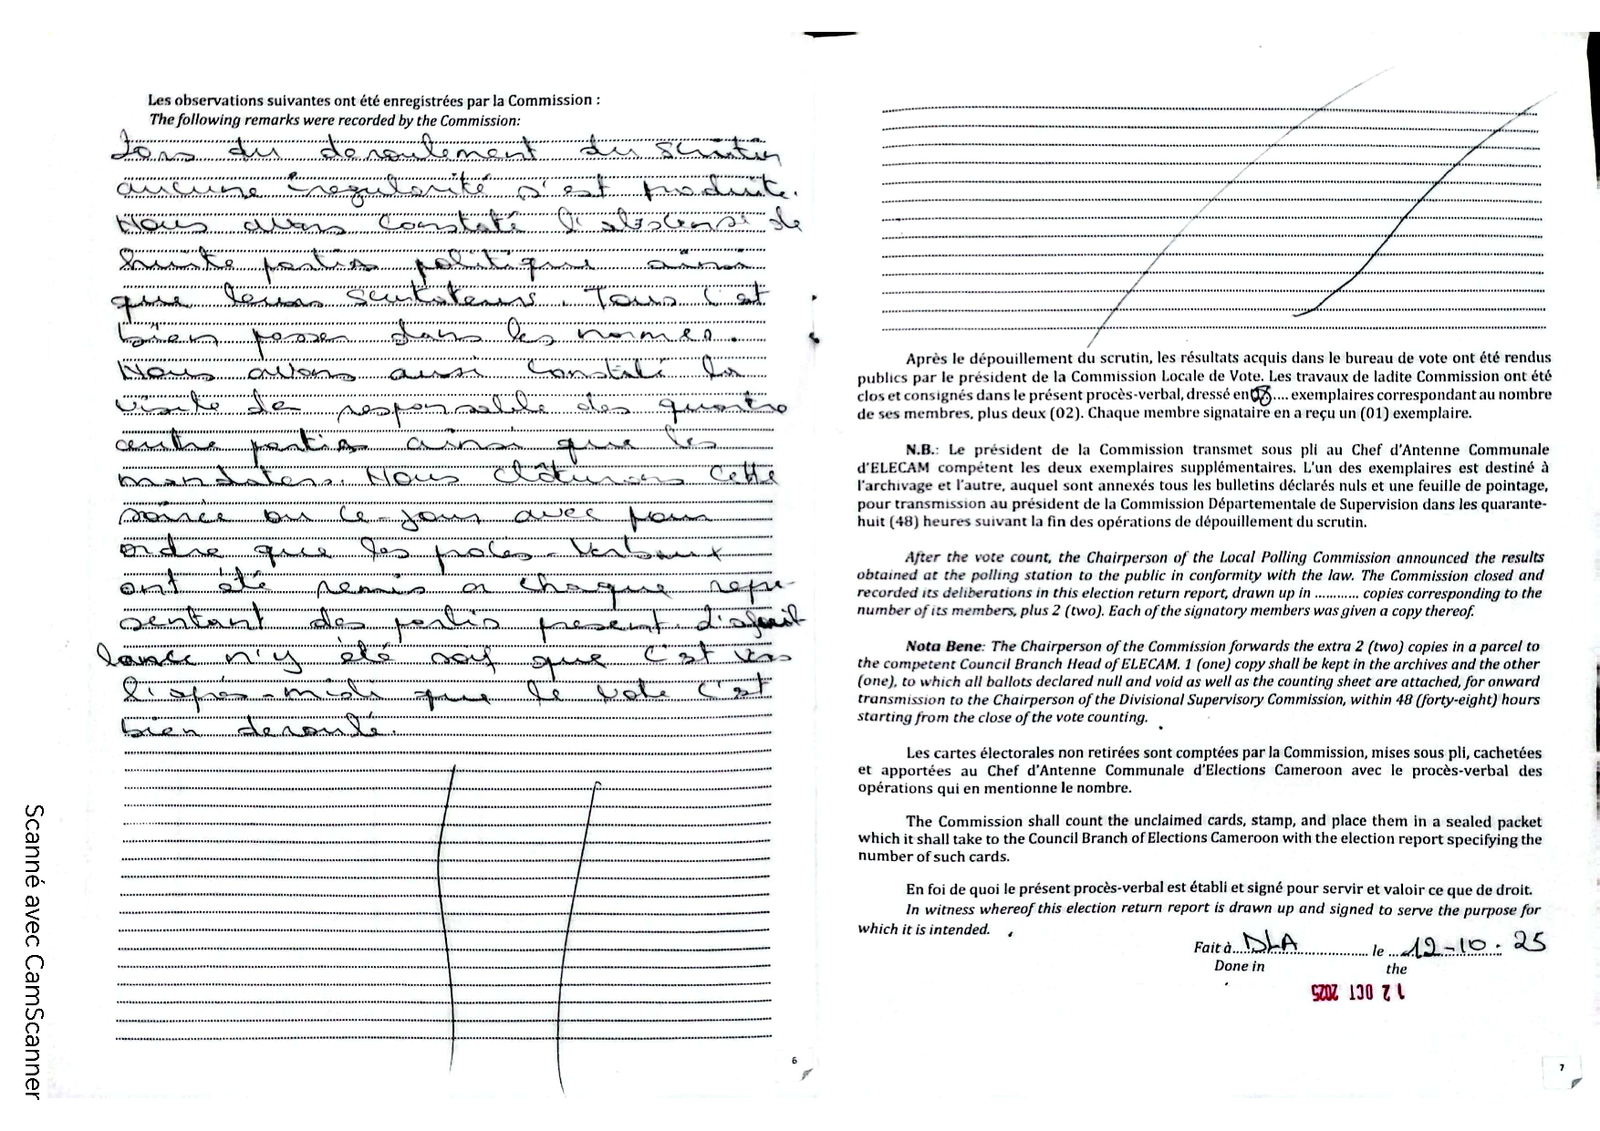 Les observations suivantes ont été enregistrées par la Commission :
The following remarks were recorded by the Commission:
Lors du deroulement du scrutin
aucune iregularité s'est produite.
Nous avons constaté l' de
huite partis politique ainsi
que leurs scutateurs. Tous c'est
bien passer dans les normes.
Nous avons aussi constaté la
visite des responsable des quatre
autre partis ainsi que les
mandaters. Nous clôturons cette
soirée ou ce-jour avec pour
ordre que les proces-verbaux
ont été remis a chaque repre-
sentant des partis present. d'
lance n'y été sauf que c'est vers
l'après-midi que le vote c'est
bien deroulé.
6
Après le dépouillement du scrutin, les résultats acquis dans le bureau de vote ont été rendus
publics par le président de la Commission Locale de Vote. Les travaux de ladite Commission ont été
clos et consignés dans le présent procès-verbal, dressé en 08.... exemplaires correspondant au nombre
de ses membres, plus deux (02). Chaque membre signataire en a reçu un (01) exemplaire.
N.B.: Le président de la Commission transmet sous pli au Chef d'Antenne Communale
d'ELECAM compétent les deux exemplaires supplémentaires. L'un des exemplaires est destiné à
l'archivage et l'autre, auquel sont annexés tous les bulletins déclarés nuls et une feuille de pointage,
pour transmission au président de la Commission Départementale de Supervision dans les quarante-
huit (48) heures suivant la fin des opérations de dépouillement du scrutin.
After the vote count, the Chairperson of the Local Polling Commission announced the results
obtained at the polling station to the public in conformity with the law. The Commission closed and
recorded its deliberations in this election return report, drawn up in ............ copies corresponding to the
number of its members, plus 2 (two). Each of the signatory members was given a copy thereof.
Nota Bene: The Chairperson of the Commission forwards the extra 2 (two) copies in a parcel to
the competent Council Branch Head of ELECAM. 1 (one) copy shall be kept in the archives and the other
(one), to which all ballots declared null and void as well as the counting sheet are attached, for onward
transmission to the Chairperson of the Divisional Supervisory Commission, within 48 (forty-eight) hours
starting from the close of the vote counting.
Les cartes électorales non retirées sont comptées par la Commission, mises sous pli, cachetées
et apportées au Chef d'Antenne Communale d'Elections Cameroon avec le procès-verbal des
opérations qui en mentionne le nombre.
The Commission shall count the unclaimed cards, stamp, and place them in a sealed packet
which it shall take to the Council Branch of Elections Cameroon with the election report specifying the
number of such cards.
En foi de quoi le présent procès-verbal est établi et signé pour servir et valoir ce que de droit.
In witness whereof this election return report is drawn up and signed to serve the purpose for
which it is intended.
Fait à DLA le 12-10-25
Done in the
12 OCT 2025
7
Scanné avec CamScanner